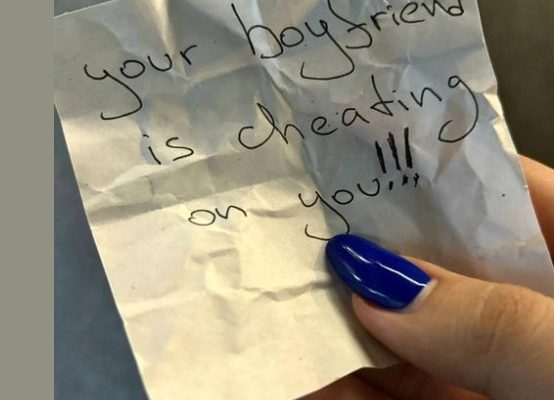 your boyfriend
is cheating
on you!!!